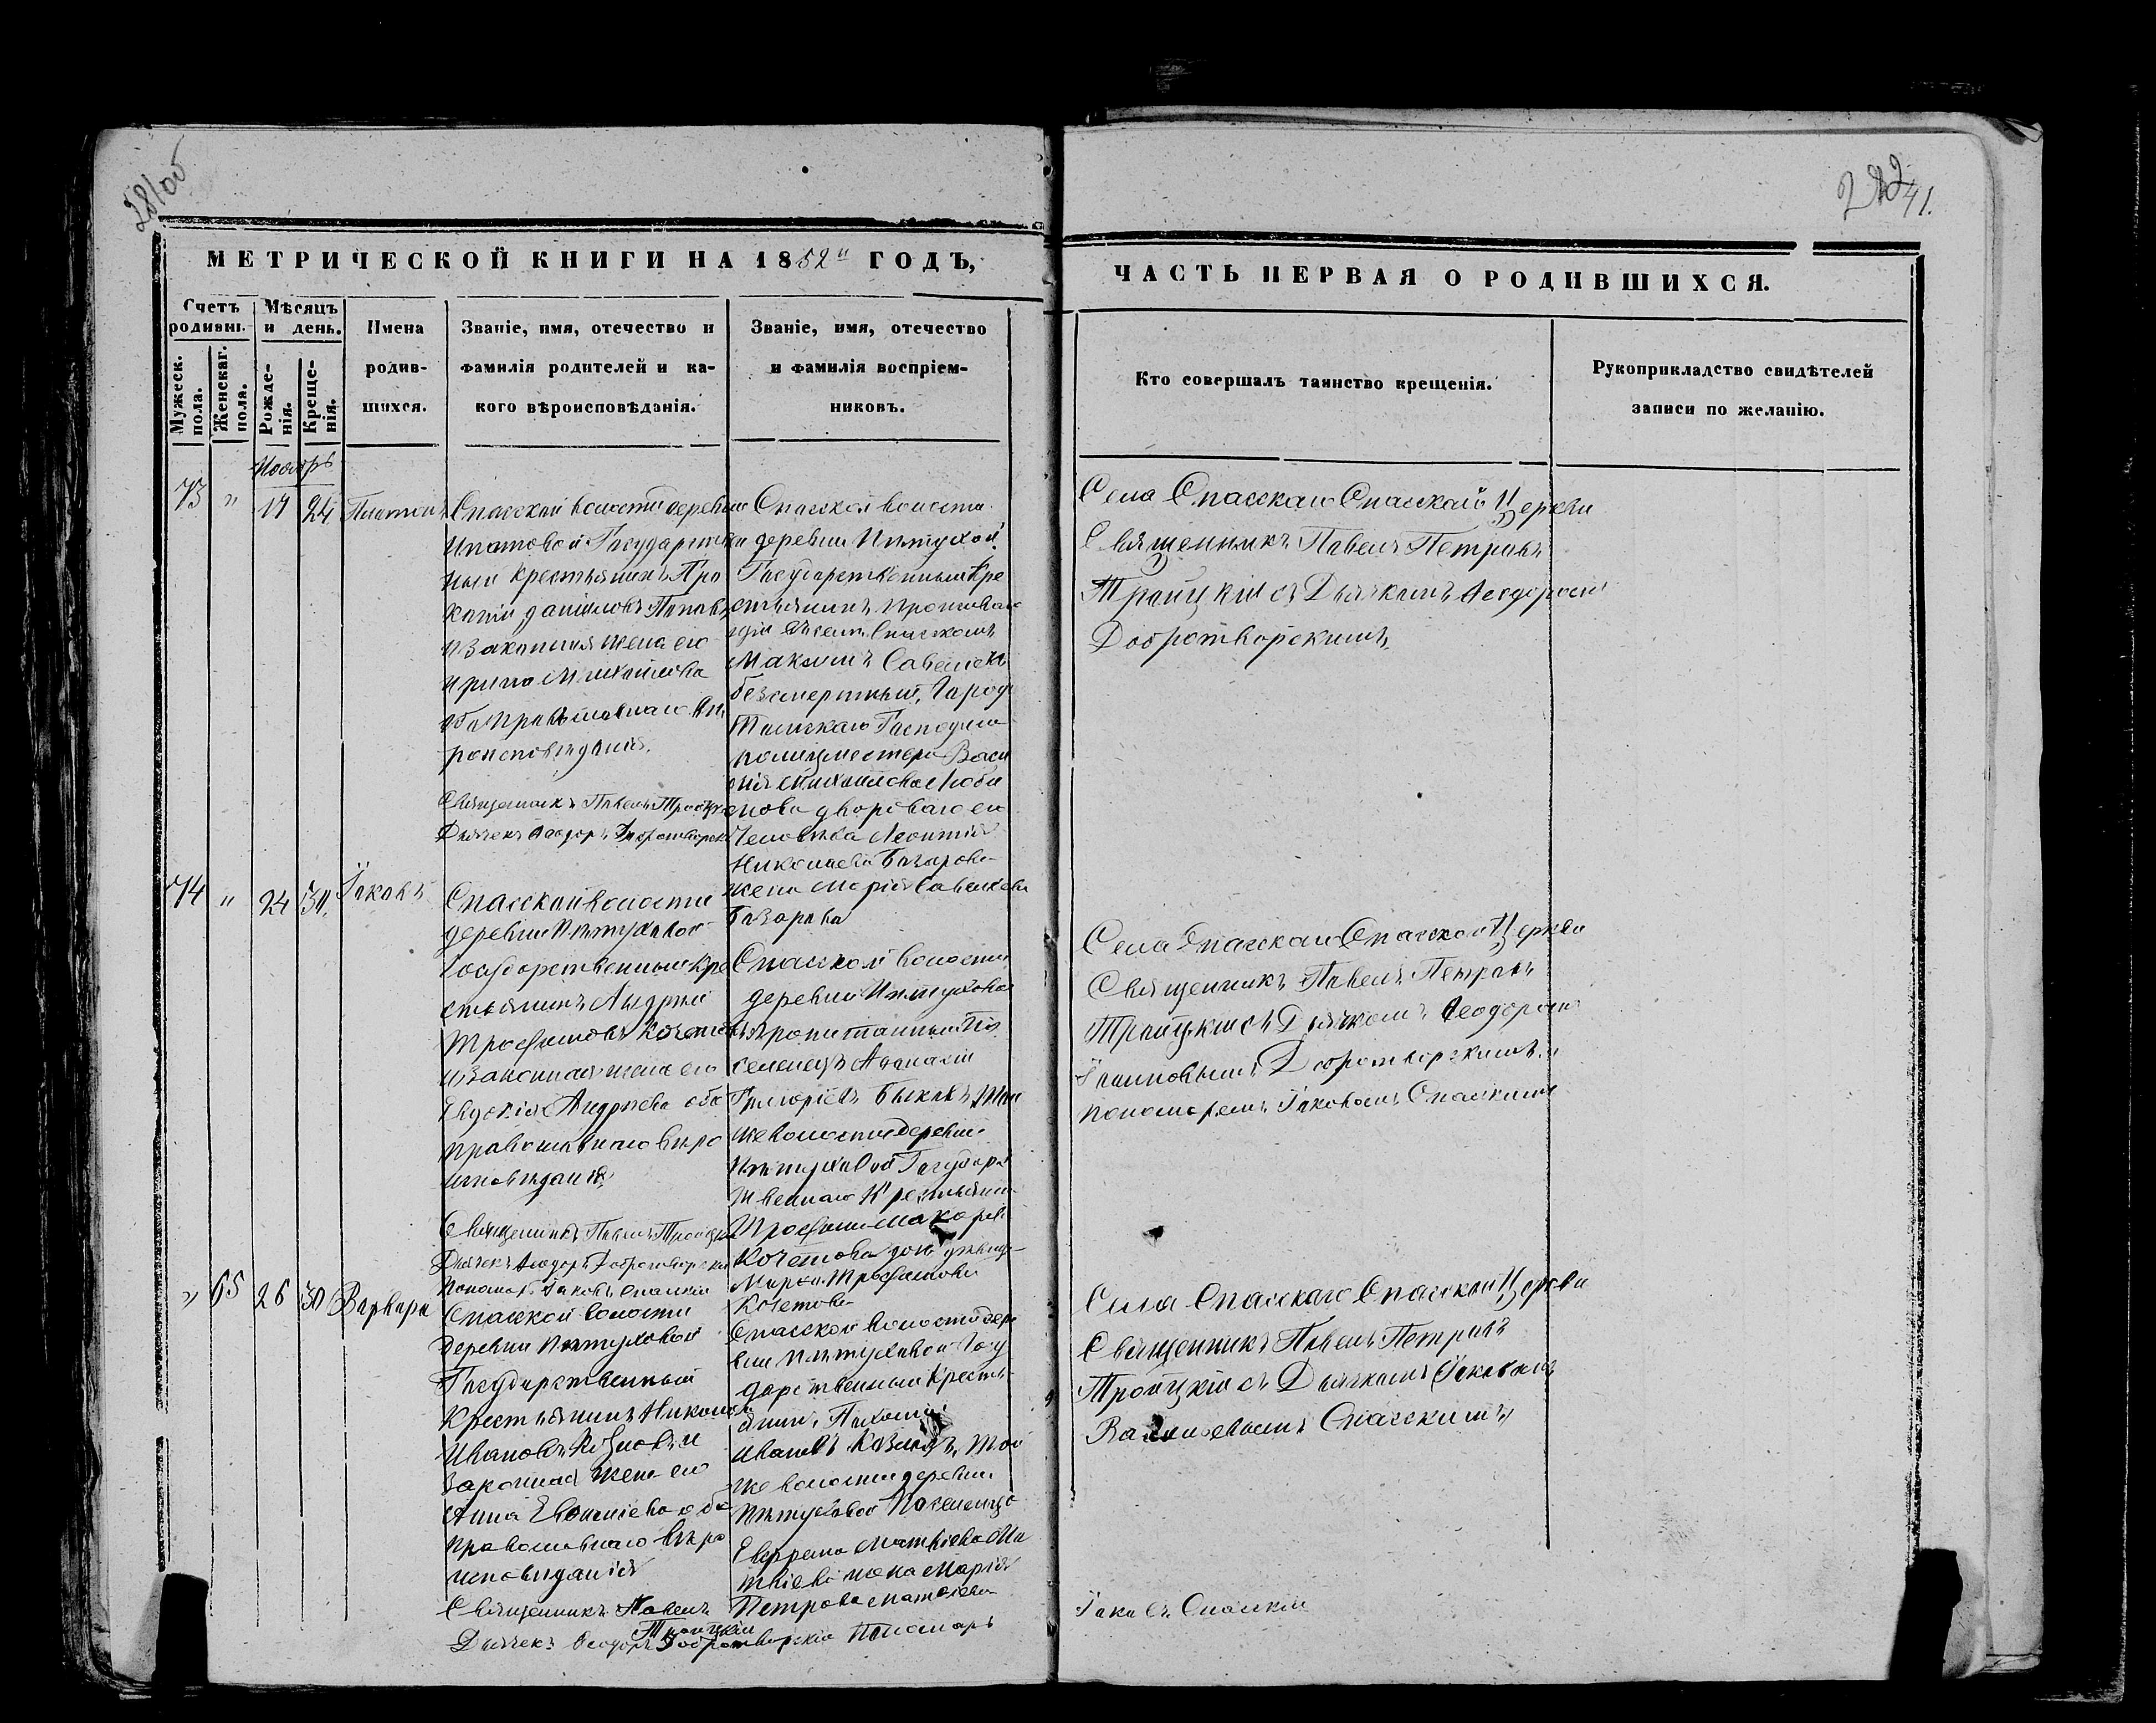 281об
282
41.
МЕТРИЧЕСКОЙ КНИГИ НА 1852й ГОДЪ,
ЧАСТЬ ПЕРВАЯ О РОДИВШИХСЯ.
Счетъ родивш.
Мужеск. пола.
Женскаг. пола.
Мѣсяцъ и день.
Рожде-
нія.
Креще-
нія.
Имена
родив-
шихся.
Званіе, имя, отечество и
фамилія родителей и ка-
кого вѣроисповѣданія.
Званіе, имя, отечество
и фамилія воспріем-
никовъ.
Кто совершалъ таинство крещенія.
Рукоприкладство свидѣтелей
записи по желанію.
Ноябрь
73 " 17 24 Платонъ
Спасской волости деревни
Ипатовой Государствен
ный крестьянинъ Про
копій Даніиловъ
и законная жена его
Ирина Михайлова
оба православнаго вѣ
роисповѣданія.
Священникъ Павелъ Троицкій
Дьячекъ Ѳеодоръ Добротворскій
Спасской волости
деревни Пѣтуховой
Государственный кре
стьянинъ проживаю
щій въ селѣ Спасскомъ
Максимъ Савельевъ
Безсмертный, Города
Томскаго Господина
полицмейстера Васи
лія Михайлова
двороваго его
человѣка Леонтія
Николаева Базарова
жена Марія Савельева
Базарова
Села Спасскаго Спасской Церкви
Священникъ Павелъ Петровъ
Троицкій съ Дьячкомъ Ѳеодоромъ
Добротворскимъ.
74 " 24 30. Іаковъ
Спасской волости
деревни Пѣтуховой
Государственный кре
стьянинъ Андрей
Трофимовъ Кочетовъ
и законная жена его
Евдокія Андреева оба
православнаго вѣро
исповѣданія.
Священникъ Павелъ Троицкій
Дьячекъ Ѳеодоръ Добротворскій
Пономарь Іаковъ Спасскій
Спасской волости
деревни Пѣтуховой
пропитанный По
селенецъ Аѳанасій
Григорьевъ Быковъ, той
же волости деревни
Пѣтуховой Государ
ственнаго Крестьянина
Трофима Макарова
Кочетова дочь дѣвица
Марѳа Трофимова
Кочетова
Села Спасскаго Спасской Церкви
Священникъ Павелъ Петровъ
Троицкій съ Дьячкомъ Ѳеодоромъ
Іоанновымъ Добротворскимъ и
пономаремъ Іаковомъ Спасскимъ
" 65 26 30 Варвара
Спасской волости
деревни Пѣтуховой
Государственный
Крестьянинъ Николай
Ивановъ и
законная жена его
Анна оба
православнаго вѣро
исповѣданія
Священникъ Павелъ
Троицкій
Дьячекъ Ѳеодоръ Добротворскій Пономарь
Спасской волости дере
вни Пѣтуховой Госу
дарственный Кресть
янинъ
Ивановъ той
же волости деревни
Пѣтуховой Поселенца
Матвѣева Ма
твѣева жена Марія
Петрова Матвѣева
Села Спасскаго Спасской Церкви
Священникъ Павелъ Петровъ
Троицкій съ Дьячкомъ Іаковомъ
Васильевымъ Спасскимъ
Іаковъ Спасскій